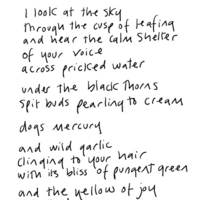 I look at the sky
through the cusp of leafing
and hear the calm shelter
of your voice
across pricked water
under the black thorns
spit buds pearling to cream
dogs mercury
and wild garlic
clinging to your hair
with its bliss of pungent green
and the yellow of joy